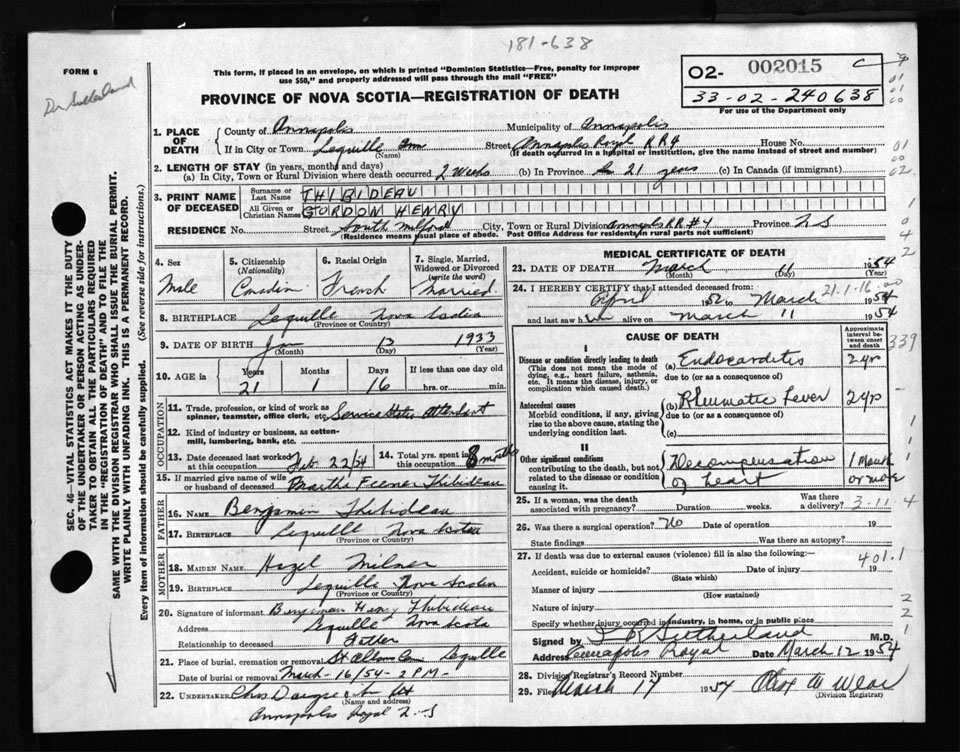 181-638
FORM 6
Dr Sutherland
This form, if placed in an envelope, on which is printed "Dominion Statistics—Free, penalty for improper
use $50," and properly addressed will pass through the mail "FREE"
PROVINCE OF NOVA SCOTIA—REGISTRATION OF DEATH
O2- 002015
33-02-240638
For use of the Department only
SEC. 46—VITAL STATISTICS ACT MAKES IT THE DUTY
OF THE UNDERTAKER OR PERSON ACTING AS UNDER-
TAKER TO OBTAIN ALL THE PARTICULARS REQUIRED
IN THE "REGISTRATION OF DEATH" AND TO FILE THE
SAME WITH THE DIVISION REGISTRAR WHO SHALL ISSUE THE BURIAL PERMIT.
WRITE PLAINLY WITH UNFADING INK. THIS IS A PERMANENT RECORD.
Every item of information should be carefully supplied. (See reverse side for instructions.)
1. PLACE OF DEATH County of Annapolis Municipality of Annapolis
If in City or Town Lequille Street Annapolis Royal RR4 House No.
(Name) (If death occurred in a hospital or institution, give the name instead of street and number)
2. LENGTH OF STAY (in years, months and days)
(a) In City, Town or Rural Division where death occurred 2 Weeks (b) In Province 21 years (c) In Canada (if immigrant)
3. PRINT NAME OF DECEASED Surname or Last Name THIBIDEAU
All Given or Christian Names GORDON HENRY
RESIDENCE No. Street South Milford City, Town or Rural Division Annapolis RR#4 Province N S
(Residence means usual place of abode. Post Office Address for residents in rural parts not sufficient)
4. Sex Male
5. Citizenship (Nationality) Canadian
6. Racial Origin French
7. Single, Married, Widowed or Divorced (write the word) Married
8. BIRTHPLACE Lequille Nova Scotia
(Province or Country)
9. DATE OF BIRTH Jan 13 1933
(Month) (Day) (Year)
10. AGE in Years 21 Months 1 Days 16 If less than one day old hrs. or min.
OCCUPATION
11. Trade, profession, or kind of work as spinner, teamster, office clerk, etc. Service Station Attendant
12. Kind of industry or business, as cotton-mill, lumbering, bank, etc.
13. Date deceased last worked at this occupation Feb. 22/54
14. Total yrs. spent in this occupation 8 months
15. If married give name of wife or husband of deceased Martha Feener Thibideau
FATHER
16. NAME Benjamin Thibideau
17. BIRTHPLACE Lequille Nova Scotia
(Province or Country)
MOTHER
18. MAIDEN NAME Hazel Milner
19. BIRTHPLACE Lequille Nova Scotia
(Province or Country)
20. Signature of informant Benjaman Henry Thibideau
Address Lequille Nova Scota
Relationship to deceased Father
21. Place of burial, cremation or removal Lequille
Date of burial or removal March-16/54- 2 PM-
22. UNDERTAKER
(Name and address)
Annapolis Royal N-S
MEDICAL CERTIFICATE OF DEATH
23. DATE OF DEATH March 11 1954
(Month) (Day) (Year)
21-1-16-00
24. I HEREBY CERTIFY that I attended deceased from:
April 1952 to March 1954
and last saw him alive on March 11 1954
CAUSE OF DEATH
Approximate interval between onset and death
339
I
Disease or condition directly leading to death (a) Endocarditis 2 yr
(This does not mean the mode of dying, e.g., heart failure, asthenia, etc. It means the disease, injury, or complication which caused death.)
due to (or as a consequence of)
Antecedent causes (b) Rheumatic Fever 2 yrs
Morbid conditions, if any, giving rise to the above cause, stating the underlying condition last.
due to (or as a consequence of)
(c)
II
Other significant conditions contributing to the death, but not related to the disease or condition causing it.
Decompensation of heart 1 Month or more
25. If a woman, was the death associated with pregnancy? Duration weeks. Was there a delivery?
3-11-4
26. Was there a surgical operation? No Date of operation 19
State findings Was there an autopsy?
27. If death was due to external causes (violence) fill in also the following:— 401.1
Accident, suicide or homicide? Date of injury 19
(State which)
Manner of injury
(How sustained)
Nature of injury
Specify whether injury occurred in industry, in home, or in public place
Signed by Sutherland M.D.
Address Annapolis Royal Date March 12 1954
28. Division Registrar's Record Number
29. Filed March 17 1954
(Division Registrar)